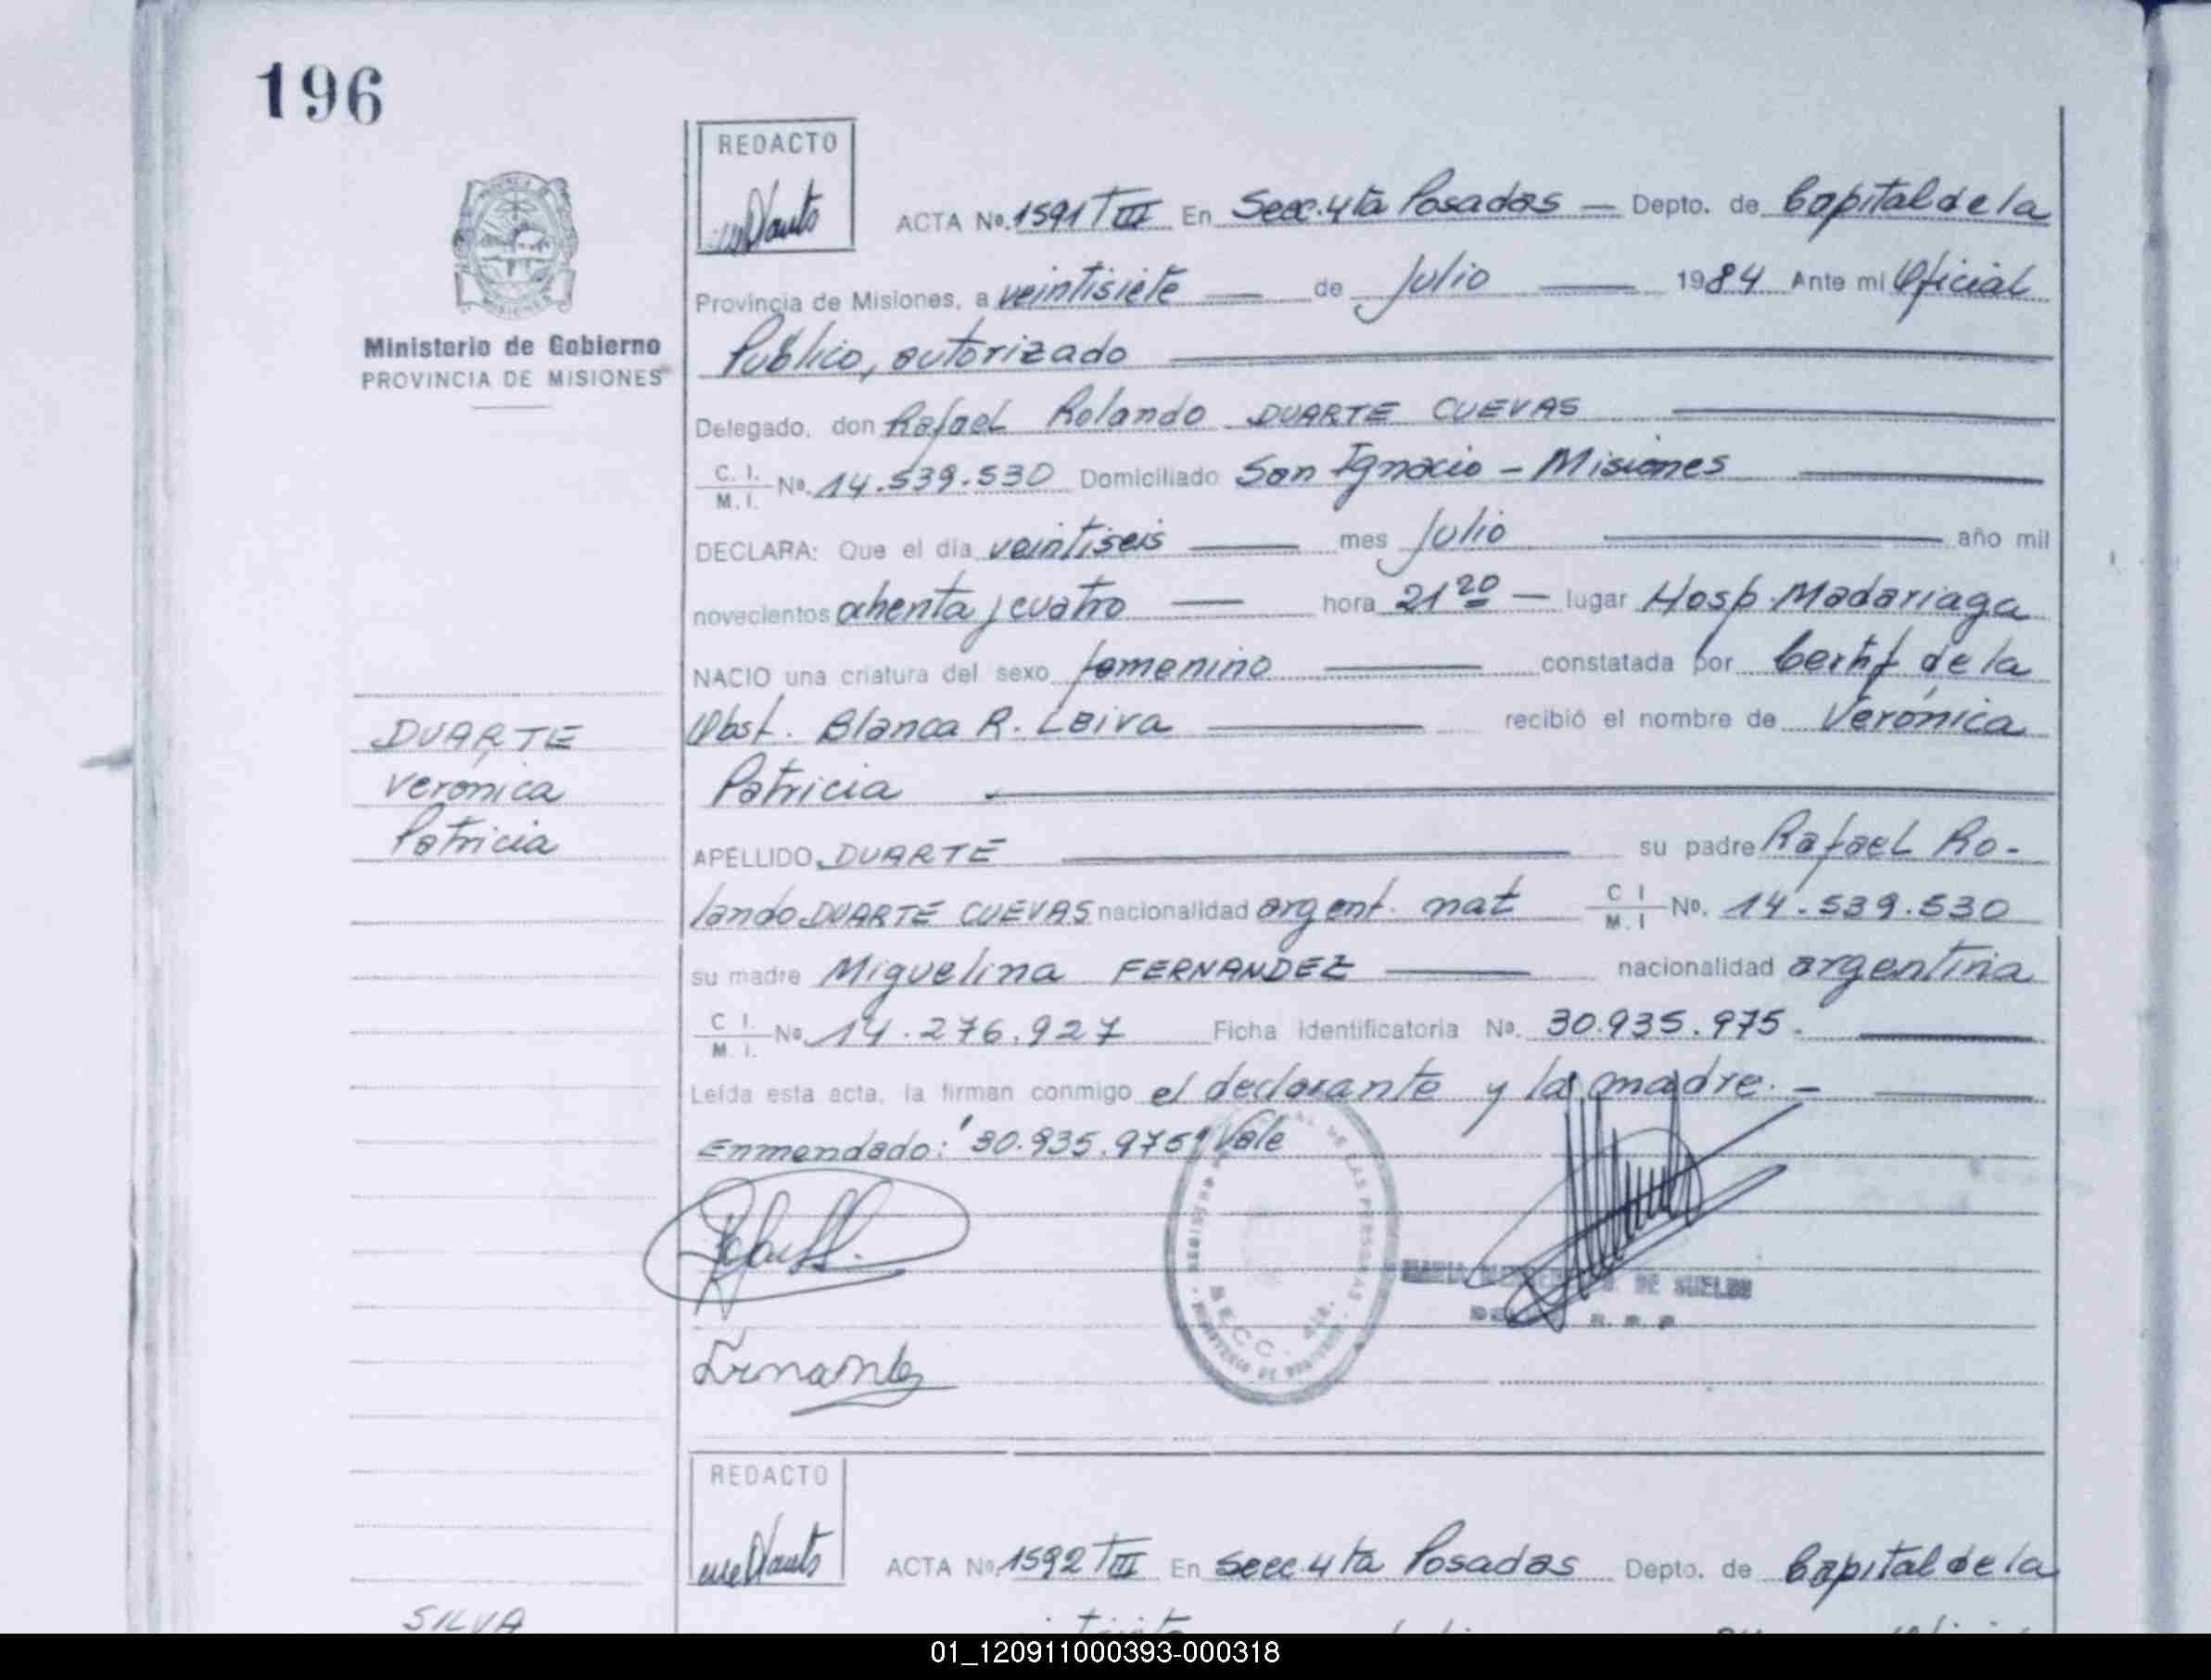 196
REDACTO
ACTA No. 1591 T III En Secc. 4ta Posadas — Depto. de Capital de la
Provincia de Misiones, a veintisiete — de Julio — 1984 Ante mi Oficial
Ministerio de Gobierno
PROVINCIA DE MISIONES
Público, autorizado
Delegado, don Rafael Rolando DUARTE CUEVAS
C. I. / M. I. No. 14.539.530 Domiciliado San Ignacio - Misiones
DECLARA: Que el día veintiseis — mes Julio — año mil
novecientos ochenta y cuatro — hora 21 20 — lugar Hosp. Madariaga
NACIO una criatura del sexo femenino — constatada por Certif de la
Obst. Blanca R. Leiva — recibió el nombre de Verónica
Patricia
DUARTE
Verónica
Patricia
APELLIDO DUARTE — su padre Rafael Ro-
lando DUARTE CUEVAS nacionalidad argent. nat C I / M. I No. 14.539.530
su madre Miguelina FERNANDEZ — nacionalidad argentina
C I. / M. I. No. 14.276.927 Ficha identificatoria No. 30.935.975.
Leída esta acta, la firman conmigo el declarante y la madre. -
Enmendado: "30.935.975" Vale
DE LAS PERSONAS
SECC. 4ta.
DE SUELDO
REDACTO
ACTA No. 1592 T III En Secc. 4ta Posadas Depto. de Capital de la
SILVA
01_120911000393-000318